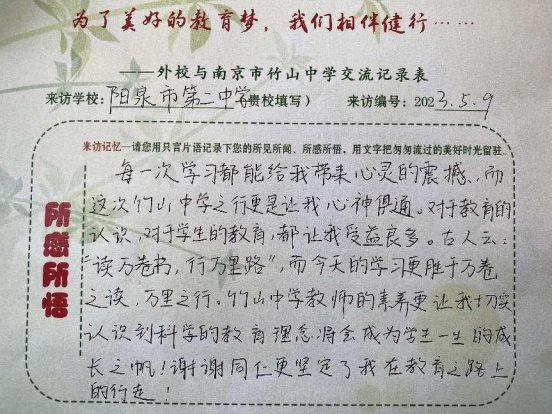 为了美好的教育梦，我们相伴健行……
——外校与南京市竹山中学交流记录表
来访学校：阳泉市第二中学（贵校填写） 来访编号：2023.5.9
来访记忆—请您用只言片语记录下您的所见所闻、所感所悟，用文字把匆匆流过的美好时光留驻..
所感所悟
每一次学习都能给我带来心灵的震撼，而
这次竹山中学之行更是让我心神俱通。对于教育的
认识，对于学生的教育，都让我受益良多。古人云：
“读万卷书，行万里路”，而今天的学习更胜于万卷
之读，万里之行。竹山中学教师的素养更让我切实
认识到科学的教育理念将会成为学生一生的成
长之帆！谢谢同仁更坚定了我在教育之路上
的行走！